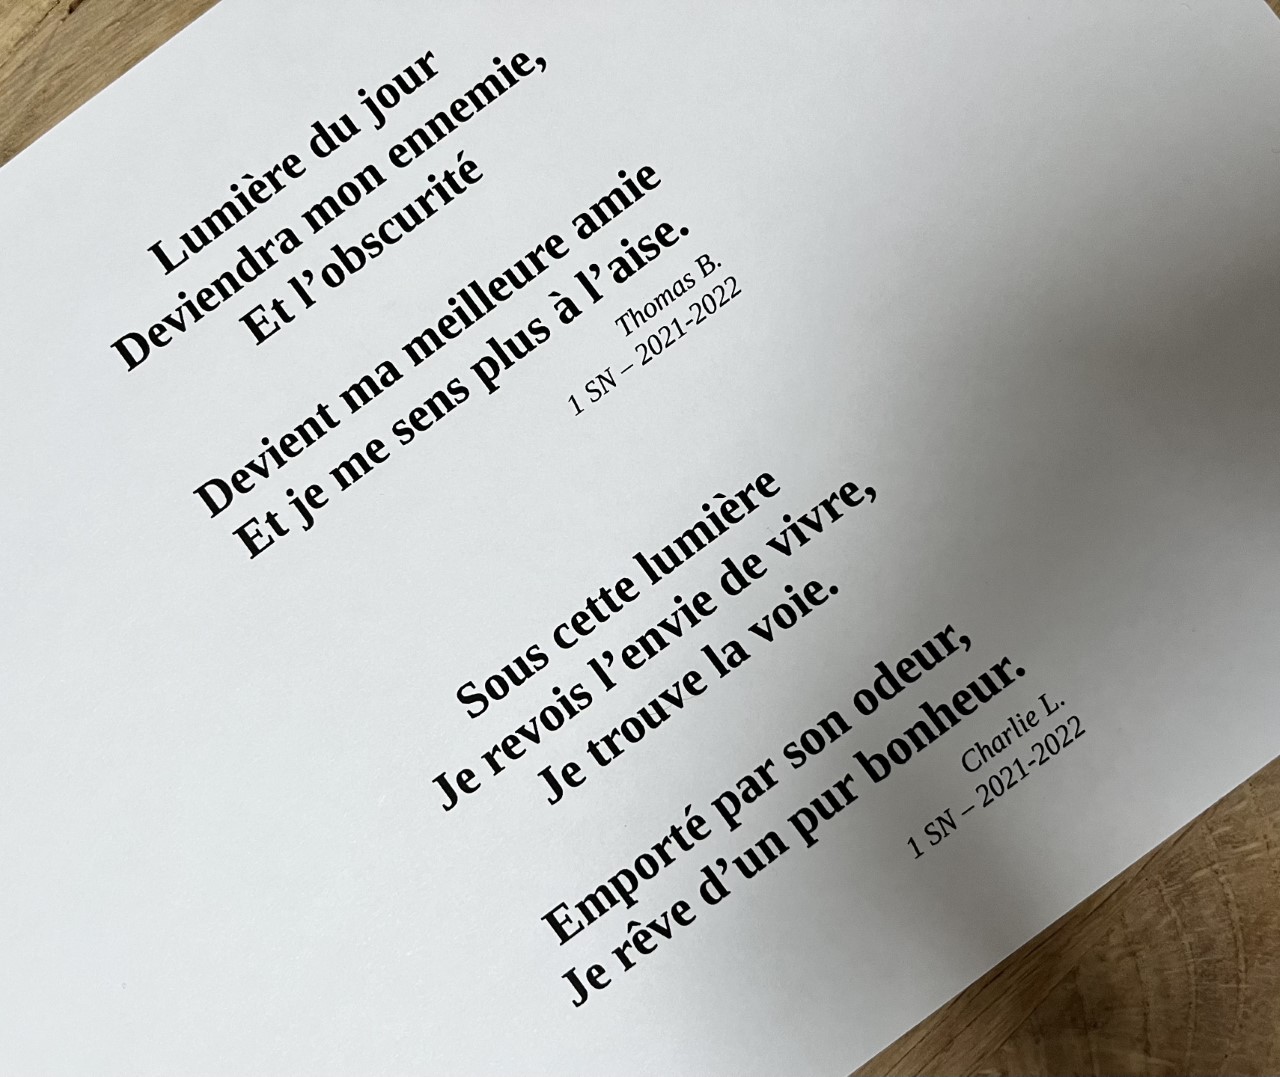 Lumière du jour
Deviendra mon ennemie,
Et l’obscurité
Devient ma meilleure amie
Et je me sens plus à l’aise.
Thomas B.
1 SN – 2021-2022
Sous cette lumière
Je revois l’envie de vivre,
Je trouve la voie.
Emporté par son odeur,
Je rêve d’un pur bonheur.
Charlie L.
1 SN – 2021-2022